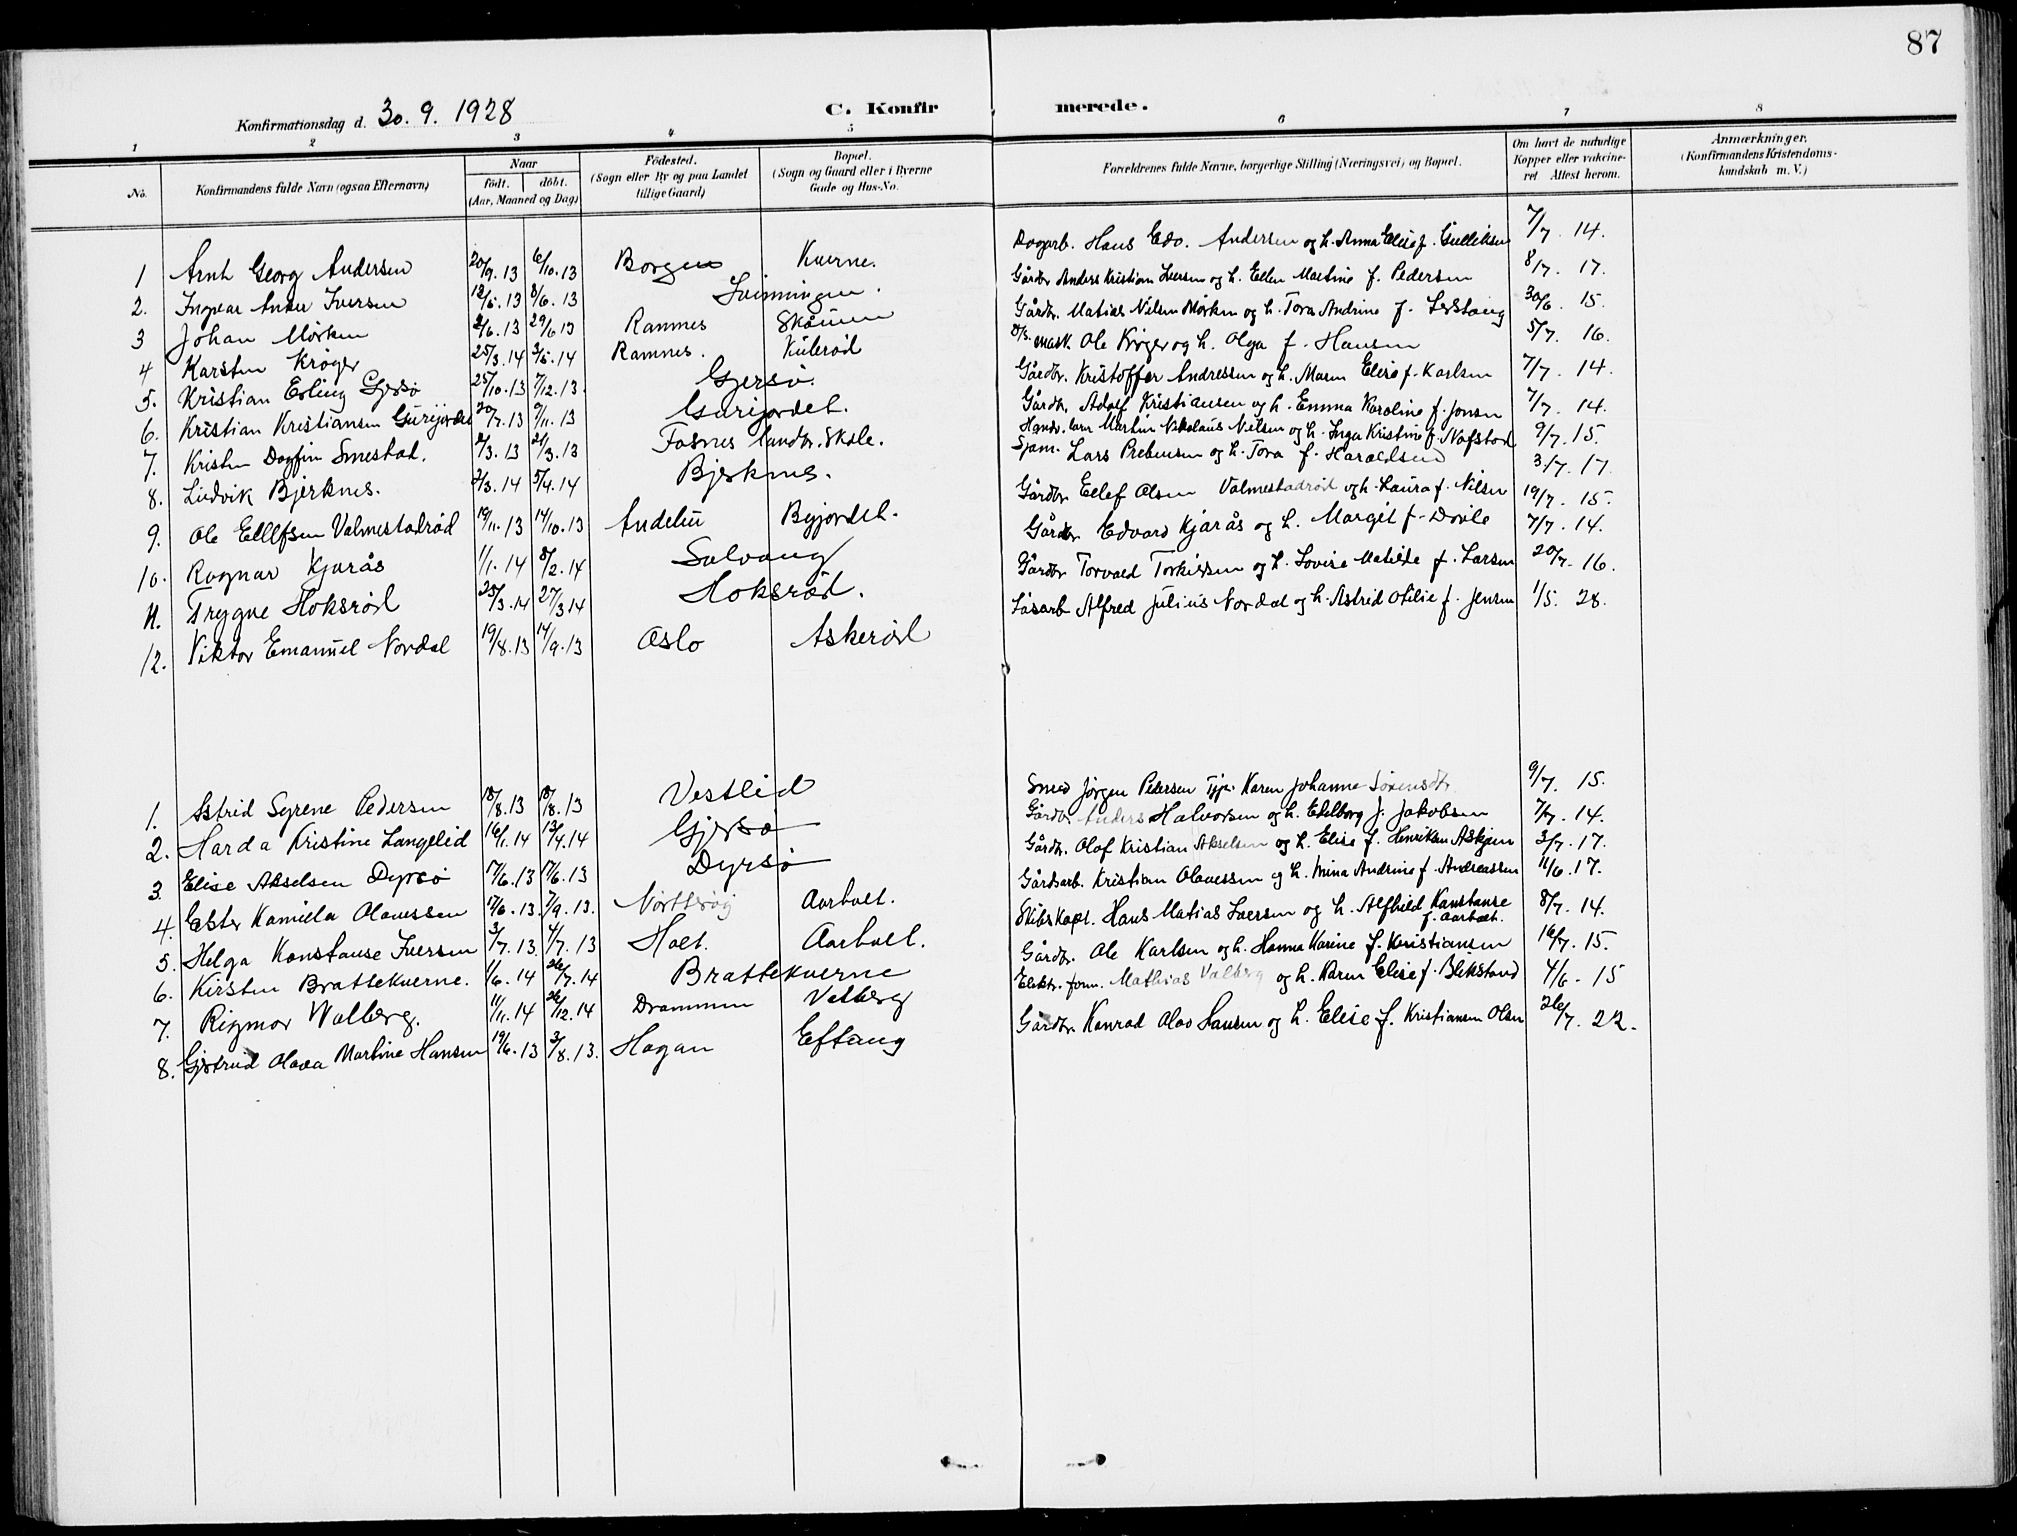 87
Konfirmationsdag d. 30. 9. 1928
C. Konfirmerede.
1 2 3 4 5 6 7 8
No.
Konfirmandens fulde Navn (ogsaa Efternavn)
Naar
födt. döbt.
(Aar, Maaned og Dag)
Födested.
(Sogn eller By og paa Landet
tillige Gaard)
Bopæl.
(Sogn og Gaard eller i Byerne
Gade og Hus-No.
Forældrenes fulde Navne, borgerlige Stilling (Næringsvei) og Bopæl.
Om havt de naturlige
Kopper eller vakcine-
ret Attest herom.
Anmærkninger.
(Konfirmandens Kristendoms-
kundskab m. V.)
1 Arnt Georg Andersen 20/9.13 6/10.13 Borgen Kverne. Dagarb. Hans Edv. Andersen og h. Anna Elise f. Gulliksen 7/7. 14.
2. Ingvar Anker Iversen 12/5.13 8/6.13 Gårdbr Anders Kristian Iversen og h. Ellen Martine f. Pedersen 8/7. 17.
3 Johan Mörken 2/6.13 29/6 13 Ramnes Gårdbr. Matias Nilsen Mörken og h. Tora Andrine f. 30/6. 15.
4 Karsten Kröger 25/3.14 3/5.14 Ramnes. Kuleröd mask. Ole Kröger og h. Olga f. Hansen 5/7. 16.
5. Kristian Erling Gjersö 25/10.13 7/12.13. Gjersö. Gårdbr. Kristoffer Andressen og h. Maren Elise f. Karlsen 7/7. 14.
6. Kristian Kristiansen Gurijordet 20/7.13 9/11.13 Gurijordet. Gårdbr. Adolf Kristiansen og h. Emma Karoline f. Jonsen 7/7. 14.
7. Kristen Dagfin Smestad. 2/3.13 21/3.13 Fosnes landbr. Skole. Martin Nikolaus Nilsen og h. Inga Kristine f. Nafstad 9/7. 15.
8. Ludvik Bjerknes. 2/3.14 5/4.14 Bjerknes. Sjöm. Lars Prebensen og h. Tora f. Haraldsen 3/7. 17.
9. Ole Ellefsen Valmestadröd 19/11.13 14/10.13 Andebu Byjordet. Gårdbr Ellef Olsen Valmestadröd og h. Laura f. Nilsen 19/7. 15.
10. Ragnar Kjærås 1/1.14 8/2.14 Solvang Gårdbr Edvard Kjærås og h. Margit f. Dovle 7/7. 14.
11. Trygve Hoksröd 25/3.14 27/3 14 Hoksröd. Gårdbr Torvald Torkilssen og h. Lovise Matilde f. Larsen 20/7. 16.
12. Viktor Emanuel Nordal 19/8.13 14/9.13 Oslo Askeröd Lösarb Alfred Julius Nordal og h. Astrid Otilie f. Jensen 1/5. 28.
1. Astrid Syrene Pedersen 18/8.13 Vestlid Smed Jörgen Petersen Tjje. Karen Johanne Sörensdtr. 9/7. 15.
2. Harda Kristine Langelid 16/1.14 13/4.14 Gjersö Gårdbr. Anders Halvorsen og h. Edelborg f. Jakobsen 7/7. 14.
3. Elise Akselsen Dyrsö 17/6.13 17/6.13 Dyrsö Gårdbr. Olaf Kristian Akselsen og h. Elise f. Henriksen Askjem 3/7. 17.
4. Ester Kamilla Olavessen 17/6.13. 7/9.13. Nötteröy Aarholt. Gårdsarb. Kristian Olavessen og h. Mina Andrine f. Andreassen 11/6.17.
5. Helga Konstanse Iversen 3/7.13. 4/7.13 Holt. Aarholt. Skibskapt. Hans Matias Iversen og h. Alfhild Konstanse f. Aarholt. 8/7. 14.
6. Kirsten Brattekverne. 1/6.14 26/7.14 Brattekverne Gårdbr. Ole Karlsen og h. Hanna Karine f. Kristiansen 16/7. 15.
7. Rigmor Walberg. 11/11.14 26/12.14 Drammen Valberg Elektr. form. Mathias Valberg og h. Karen Elise f. Blikstad 4/6. 15
8. Gjertrud Olava Martine Hansen 19/6.13 3/8.13. Hagan Eftang Gårdbr. Konrad Olav Hansen og h. Elise f. Kristiansen Olsen 26/7. 22.